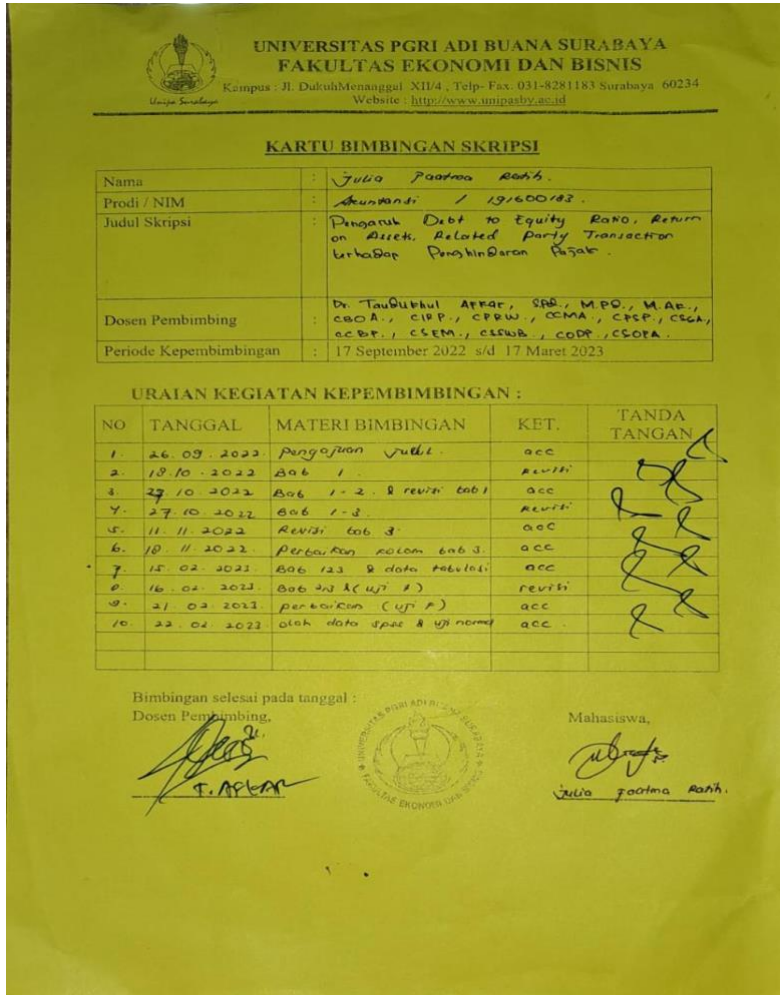 UNIVERSITAS PGRI ADI BUANA SURABAYA
FAKULTAS EKONOMI DAN BISNIS
Kampus : Jl. DukuhMenanggal XII/4 , Telp- Fax. 031-8281183 Surabaya 60234
Website : http://www.unipasby.ac.id
Unipa Surabaya
KARTU BIMBINGAN SKRIPSI
Nama : Julia Ratih.
Prodi / NIM : Akuntansi / 191600183.
Judul Skripsi : Pengaruh Debt to Equity Ratio, Return
on Assets, Related Party Transaction
terhadap Penghindaran Pajak.
Dosen Pembimbing : Dr. Afkar, SPd., M.PD., M.AK.,
CBOA., CIRP., CPRW., CCMA., CPSP., CSGA,
CCBF., CSEM., CODP., CSOPA.
Periode Kepembimbingan : 17 September 2022 s/d 17 Maret 2023
URAIAN KEGIATAN KEPEMBIMBINGAN :
NO TANGGAL MATERI BIMBINGAN KET. TANDA TANGAN
1. 26.09.2022 Pengajuan Judul. acc
2. 18.10.2022 Bab 1. Revisi
3. 10.2022 Bab 1-2. & revisi bab 1 acc
4. 27.10.2022 Bab 1-3. Revisi
5. 11.11.2022 Revisi bab 3. acc
6. 18.11.2022. Perbaikan kolom bab 3. acc
7. 15.02.2023. Bab 123 & data tabulasi acc
8. 16.02.2023. Bab & (uji F) revisi
9. 21.02.2023. perbaikan (uji F) acc
10. 22.02.2023 olah data spss & uji normal acc.
Bimbingan selesai pada tanggal :
Dosen Pembimbing,
Mahasiswa,
UNIVERSITAS PGRI ADI BUANA SURABAYA
FAKULTAS EKONOMI DAN BISNIS
T. AFKAR
Julia Ratih.